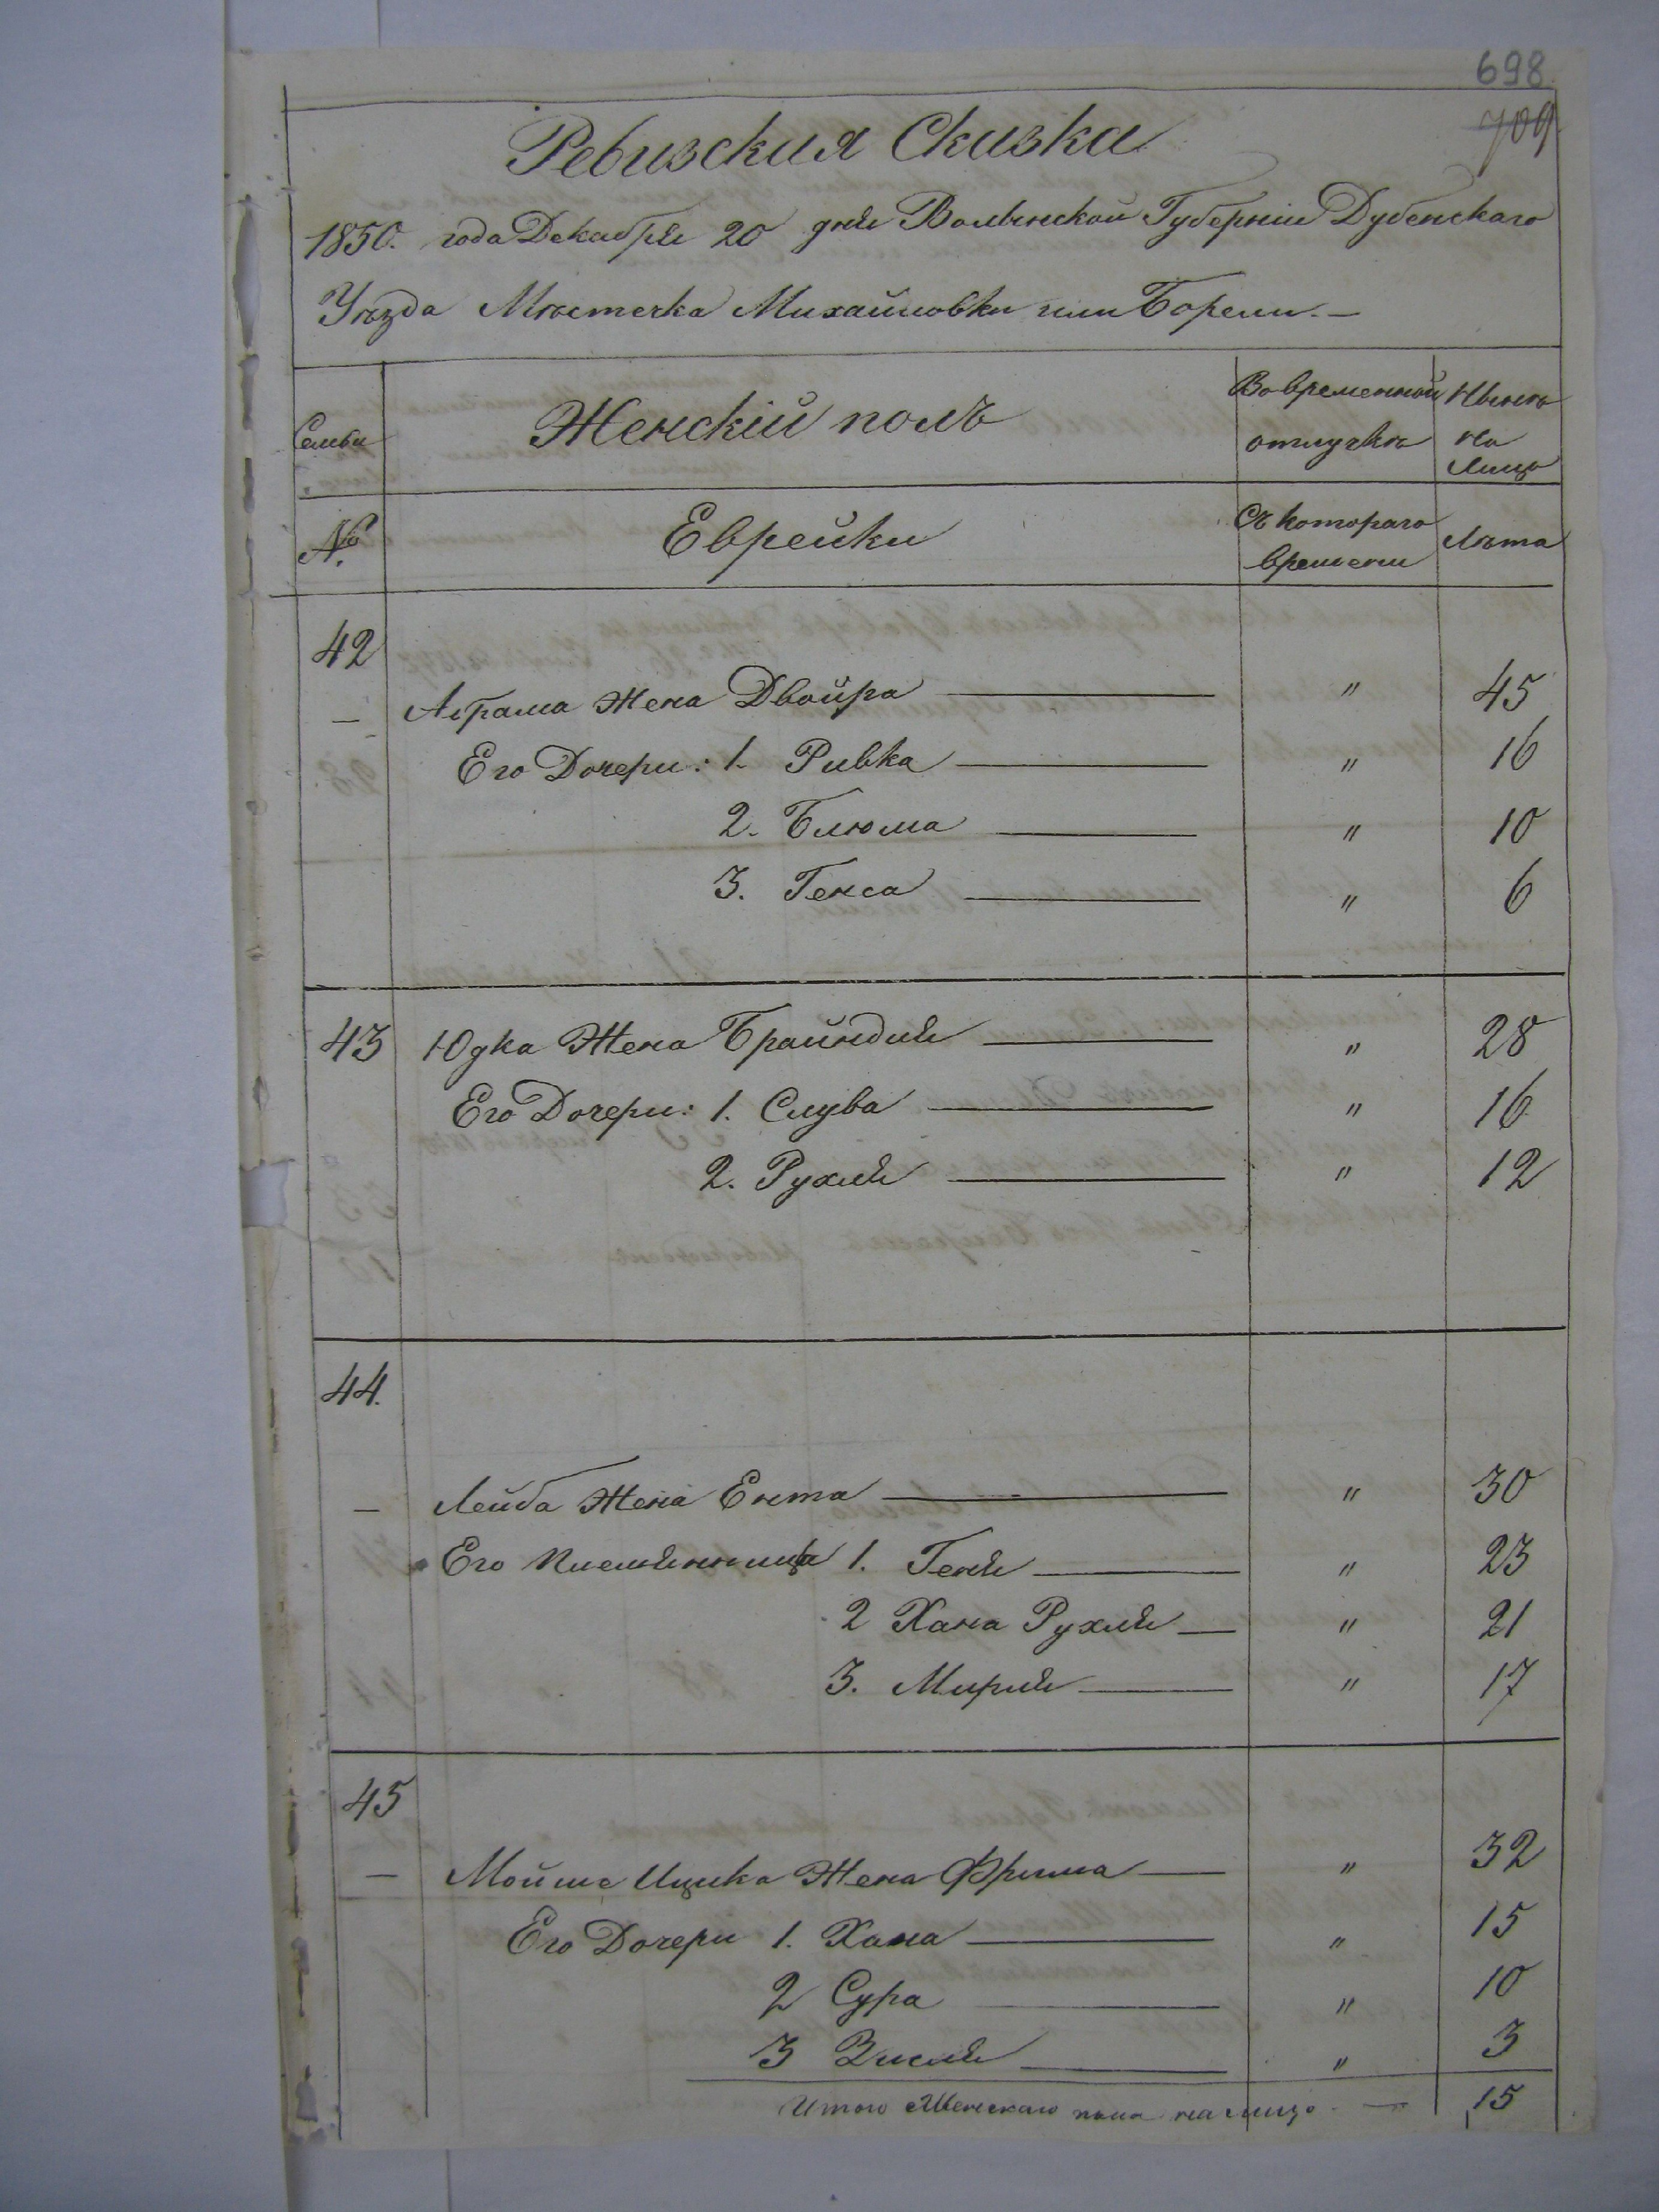 698
709
Ревизская Сказка
1850. года Декабря 20 дня Волынской Губерніи Дубенскаго
Уѣзда Мѣстечка Михайловки или Боремль.—
Семьи
Женскій полъ
Во временной отлучкѣ
Нынѣ на лицо
№.
Еврейки
Съ котораго времени
Лѣта
42
— Абрама Жена Двойра — " 45
Его Дочери: 1. Ривка — " 16
2. Блюма — " 10
3. Генса — " 6
43 Юдка Жена Брайндля — " 28
Его Дочери: 1. Слува — " 16
2. Рухля — " 12
44.
— Лейба Жена Ента — " 30
Его племянница 1. Геня — " 23
2 Хана Рухля — " 21
3. Мирля — " 17
45
— Мойше Ицика Жена Фрима — " 32
Его Дочери 1. Хана — " 15
2 Сура — " 10
3 Зисля — " 3
Итого Женскаго пола на лицо — 15